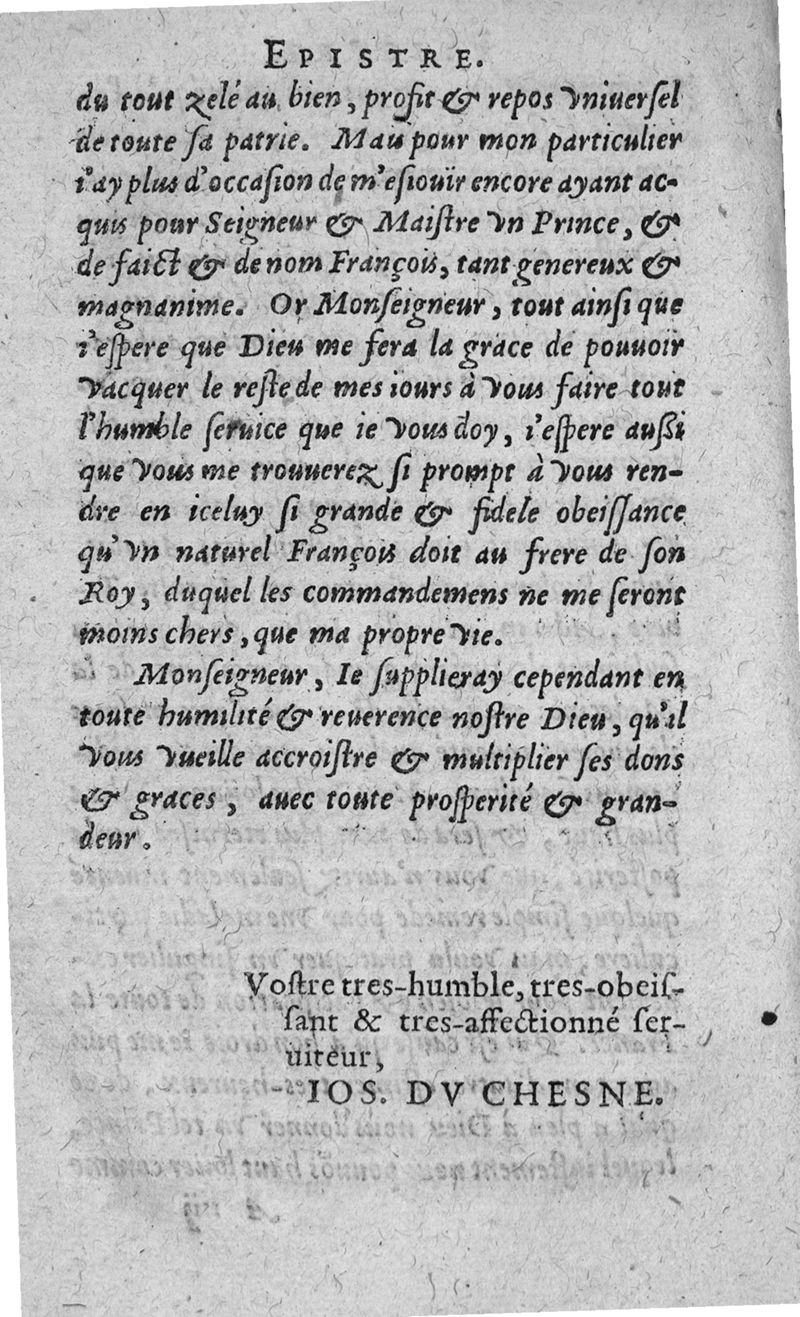 EPISTRE.
du tout zelé au bien, profit & repos vniuerſel
de toute ſa patrie. Mais pour mon particulier
i'ay plus d'occaſion de m'eſiouïr encore ayant ac-
quis pour Seigneur & Maiſtre vn Prince, &
de faict & de nom François, tant genereux &
magnanime. Or Monſeigneur, tout ainſi que
i'eſpere que Dieu me fera la grace de pouuoir
vacquer le reſte de mes iours à vous faire tout
l'humble ſeruice que ie vous doy, i'eſpere auſſi
que vous me trouuerez ſi prompt à vous ren-
dre en iceluy ſi grande & fidele obeiſſance
qu'vn naturel François doit au frere de ſon
Roy, duquel les commandemens ne me ſeront
moins chers, que ma propre vie.
Monſeigneur, Ie ſupplieray cependant en
toute humilité & reuerence noſtre Dieu, qu'il
vous vueille accroiſtre & multiplier ſes dons
& graces, auec toute proſperité & gran-
deur.
Voſtre tres-humble, tres-obeiſ-
ſant & tres-affectionné ſer-
uiteur,
IOS. DV CHESNE.